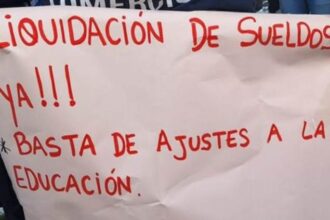 COMERCIO
LIQUIDACIÓN DE SUELDOS
YA!!!
* BASTA DE AJUSTES A LA
EDUCACIÓN.